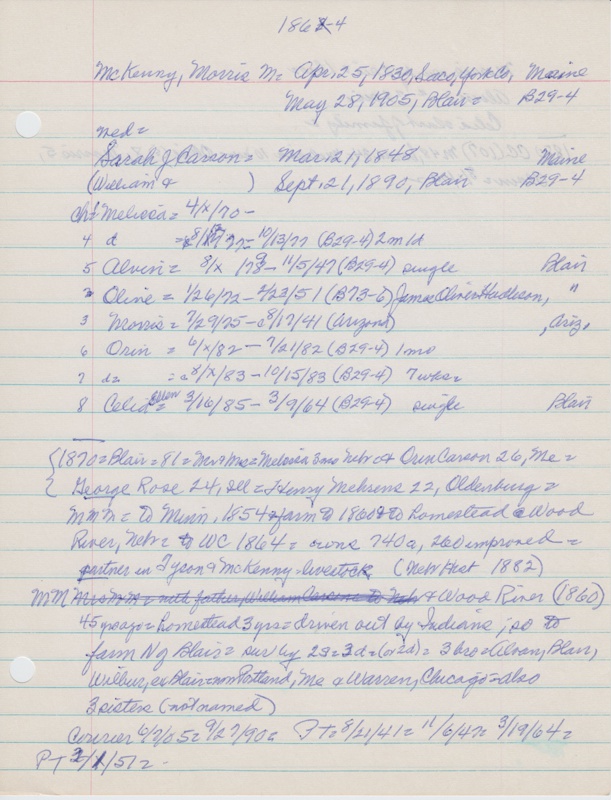 1864-4
McKenny, Morris M= Apr. 25, 1830, Saco, York Co, Maine
May 28, 1905, Blair= B29-4
wed=
Sarah J Carson= Mar. 21, 1848 Maine
(William & ) Sept. 21, 1890, Blair B29-4
ch= Melissa= 4/x/70-
4 d 77= 10/13/77 (B29-4) 2m 1d
5 Alvin= 8/x/79-11/5/47 (B29-4) single Blair
2 Oline= 1/26/72-2/23/51 (B73-6) James Oliver Hadleson, "
3 Morris= 7/29/75-c8/17/41 (Arizona) , Ariz,
6 Orin= 6/x/82-7/21/82 (B29-4) 1mo
7 d= =a8/x/83-10/15/83 (B29-4) 7wks=
8 Celia Ellen= 3/16/85-3/9/64 (B29-4) single Blair
{1870=Blair=81=Mr & Mrs=Melissa 3mo Nebr & Orin Carson 26, Me=
{ George Rose 24, Ill=Henry Mehrens 22, Oldenburg=
MMM= to Minn, 1854=farm to 1860=to homestead @ Wood
River, Nebr= to WC 1864= owns 740a, 260 improved=
partner in Tyson & McKenny=livestock (Nebr Hist 1882)
MM & Wood River (1860)
45 yrs ago=homestead 3yrs=driven out by Indians; so to
farm N of Blair= sur by 2s=3d=(or 2d)=3 bro=Alvan, Blair,
Wilbur, ex Blair=now Portland, Me & Warren, Chicago=also
3 sisters (not named)
Courier 6/7/05= 9/27/90= PT= 8/21/41= 11/6/47= 3/19/64=
PT 3/1/51=